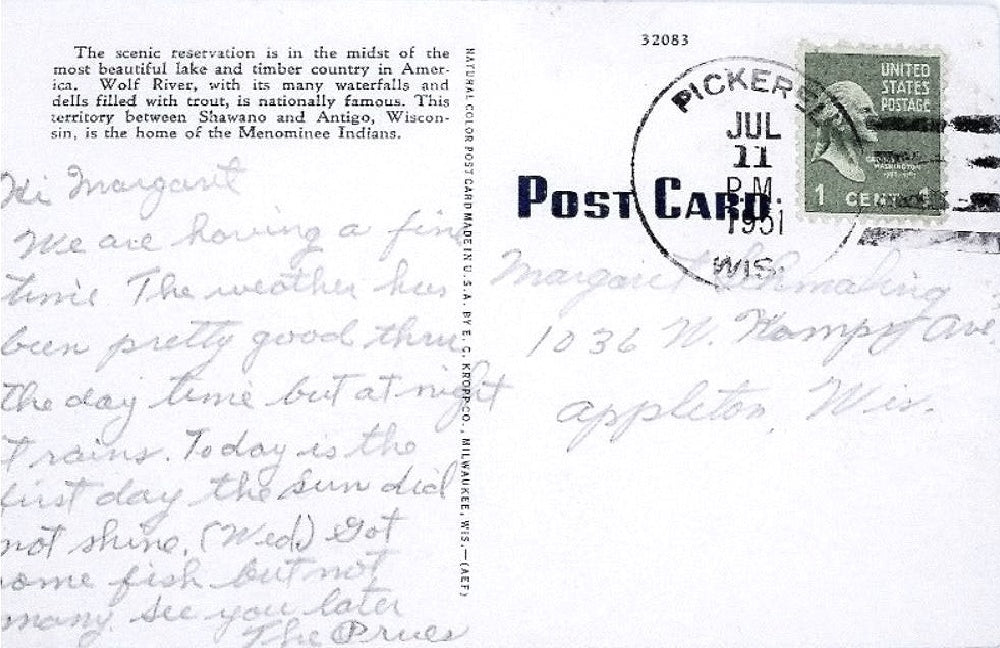 The scenic reservation is in the midst of the
most beautiful lake and timber country in Amer-
ica. Wolf River, with its many waterfalls and
dells filled with trout, is nationally famous. This
territory between Shawano and Antigo, Wiscon-
sin, is the home of the Menominee Indians.
Hi Margaret
We are having a fine
time The weather has
been pretty good thru
the day time but at night
it rains. Today is the
first day the sun did
not shine. (Wed.) Got
some fish but not
many. See you later
The Prues
NATURAL COLOR POST CARD MADE IN U.S.A. BY E. C. KROPP CO., MILWAUKEE, WIS.—(AEF)
32083
POST CARD
PICKEREL
JUL
11
P.M.
1951
WIS.
UNITED
STATES
POSTAGE
WASHINGTON
1 CENT 1
Margaret Schmaling
1036 W. Ave.
Appleton, Wis.